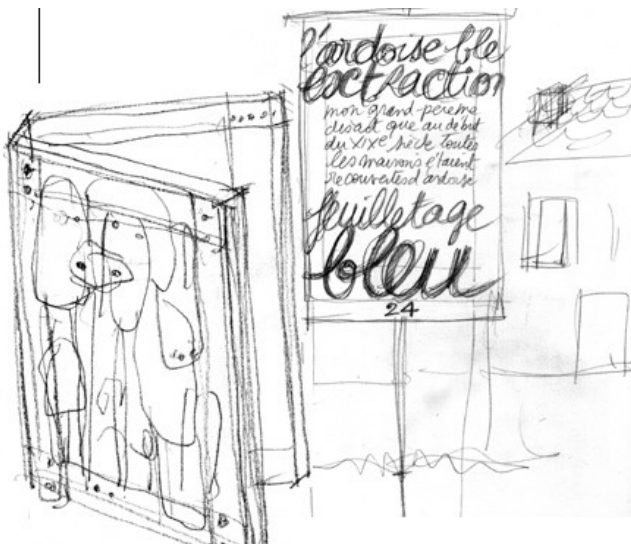 l'ardoise ble
exctraction
mon grand-pere ma
disait que au debut
du XIXe siecle toutes
les maisons etaient
recouvertes d ardoise
feuilletage
bleu
24